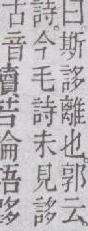 曰斯誃離也郭云
詩今毛詩未見誃
古音讀若論語跢